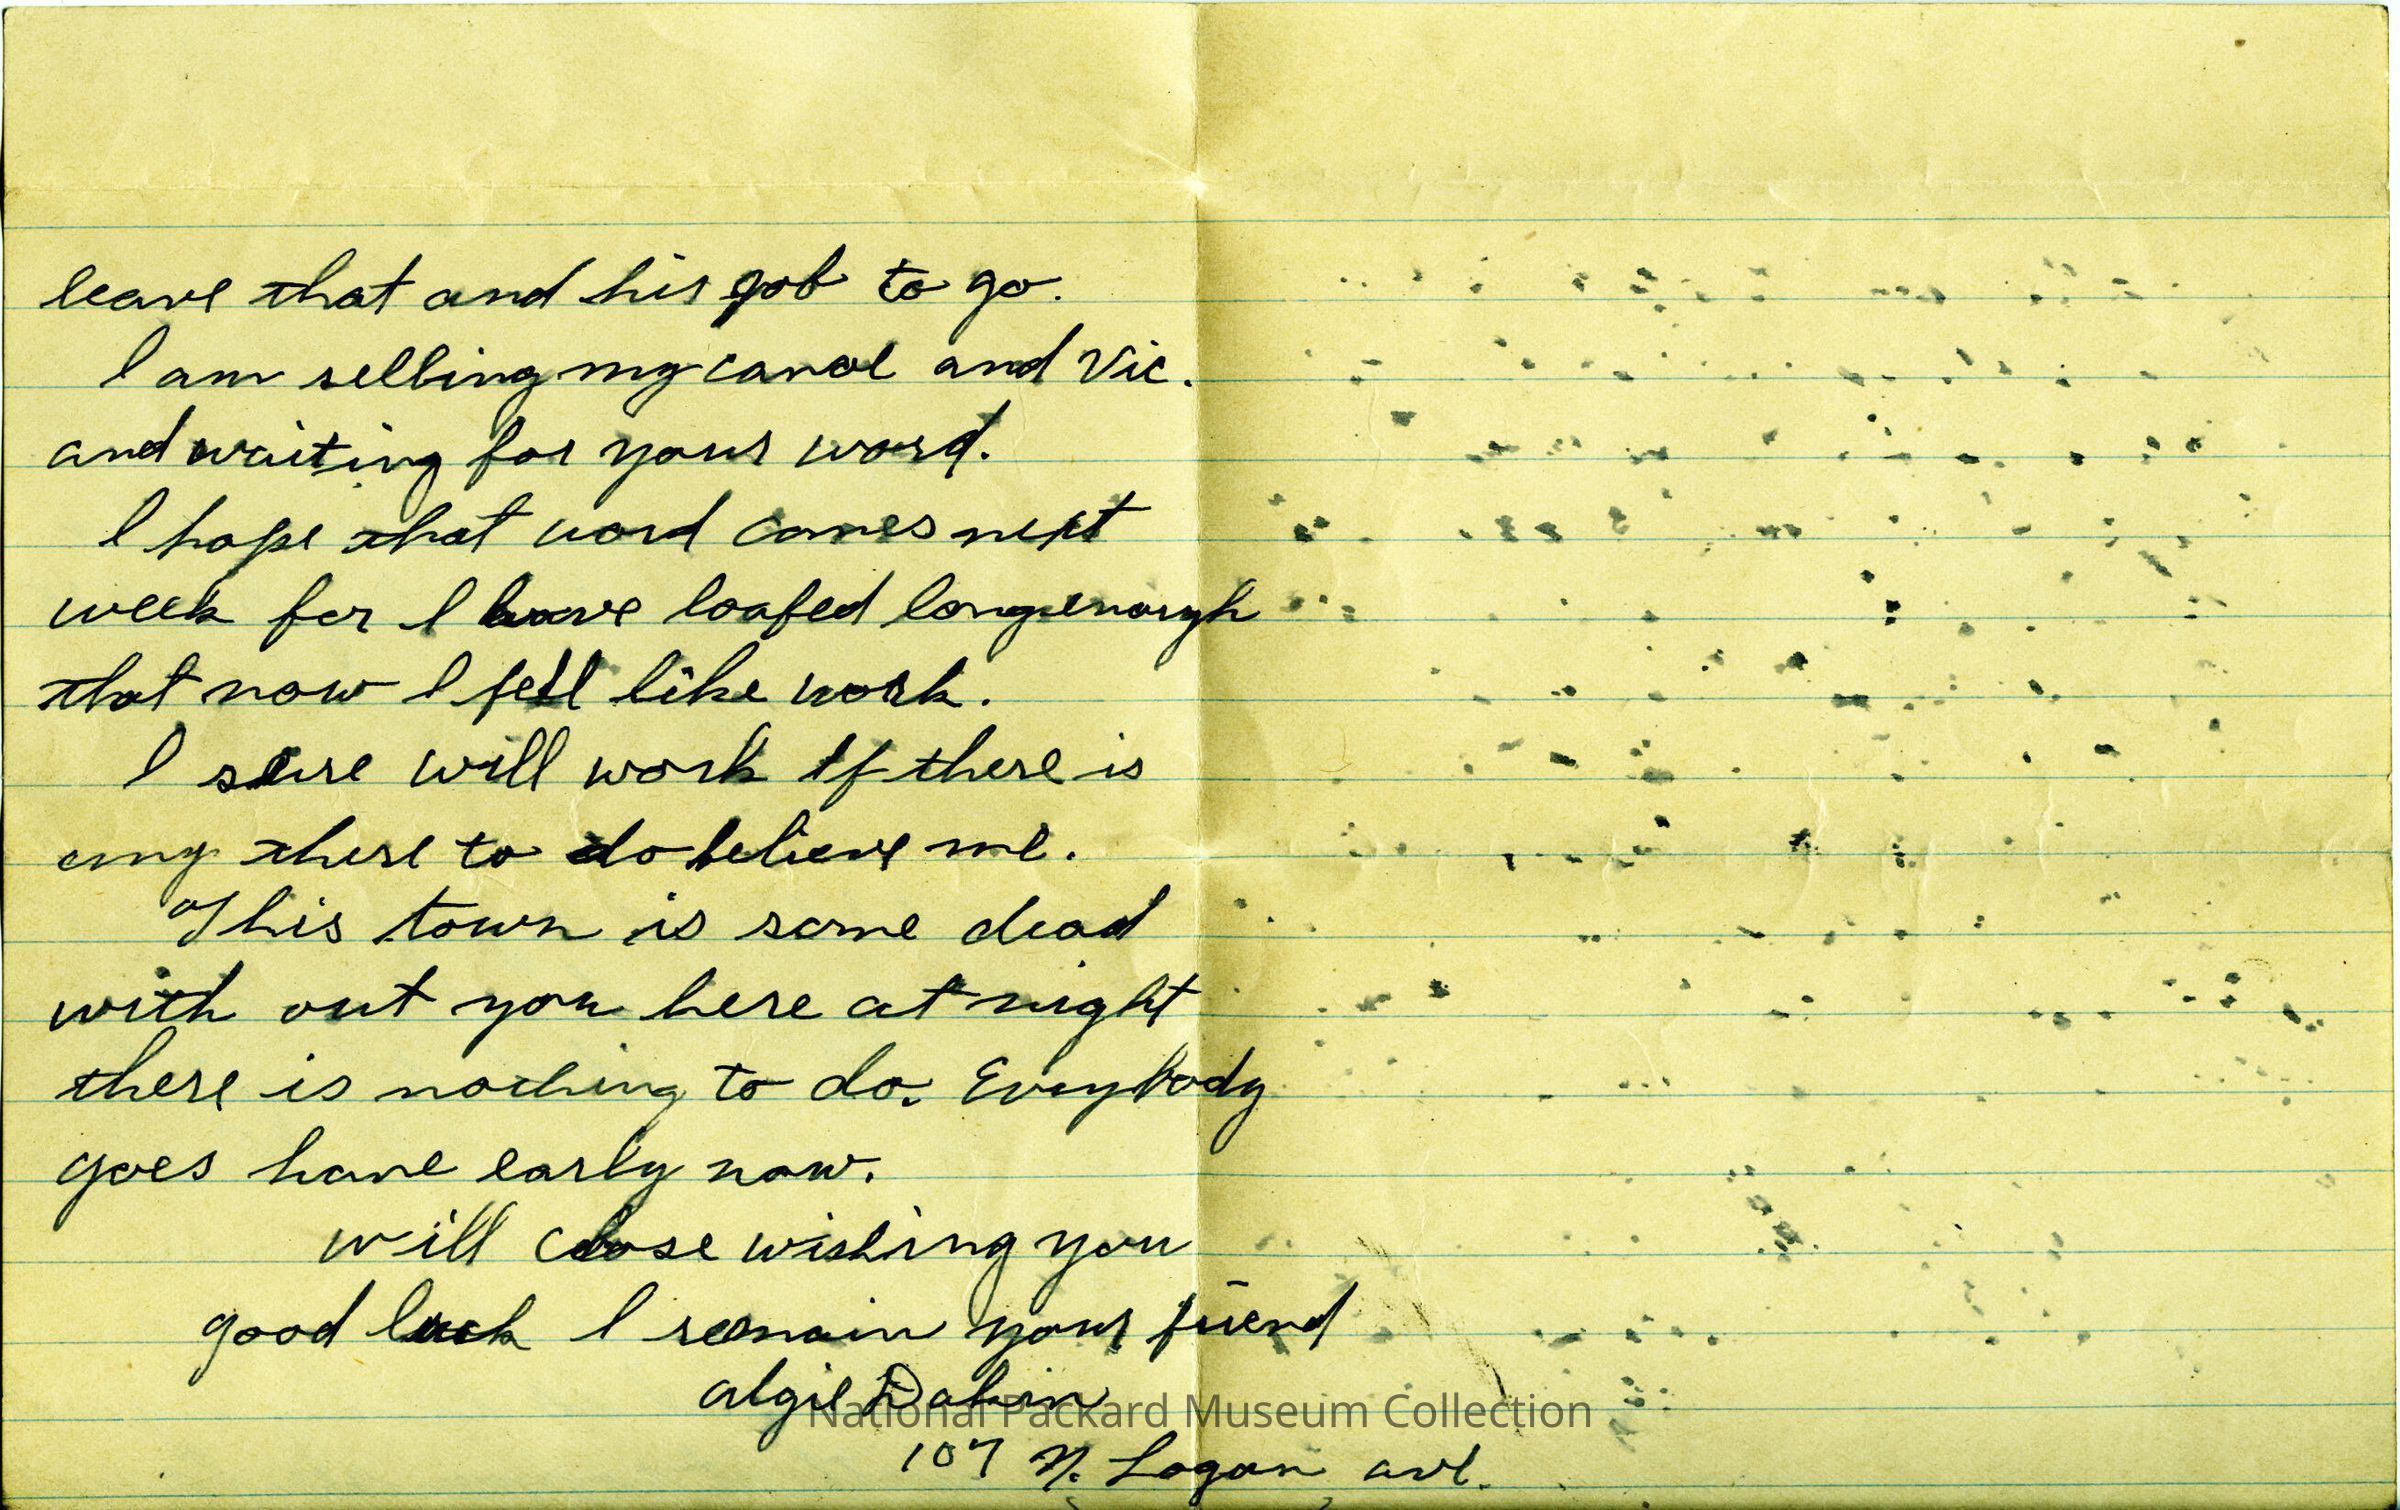 leave that and his job to go.
I am selling my canoe and Vic.
and waiting for your word.
I hope that word comes next
week for I have loafed long enough
that now I feel like work.
I sure will work If there is
any there to do believe me.
This town is some dead
with out you here at night
there is nothing to do. Everybody
goes home early now.
will close wishing you
good luck I remain your friend
Algie Dakin
National Packard Museum Collection
107 N. Logan ave.